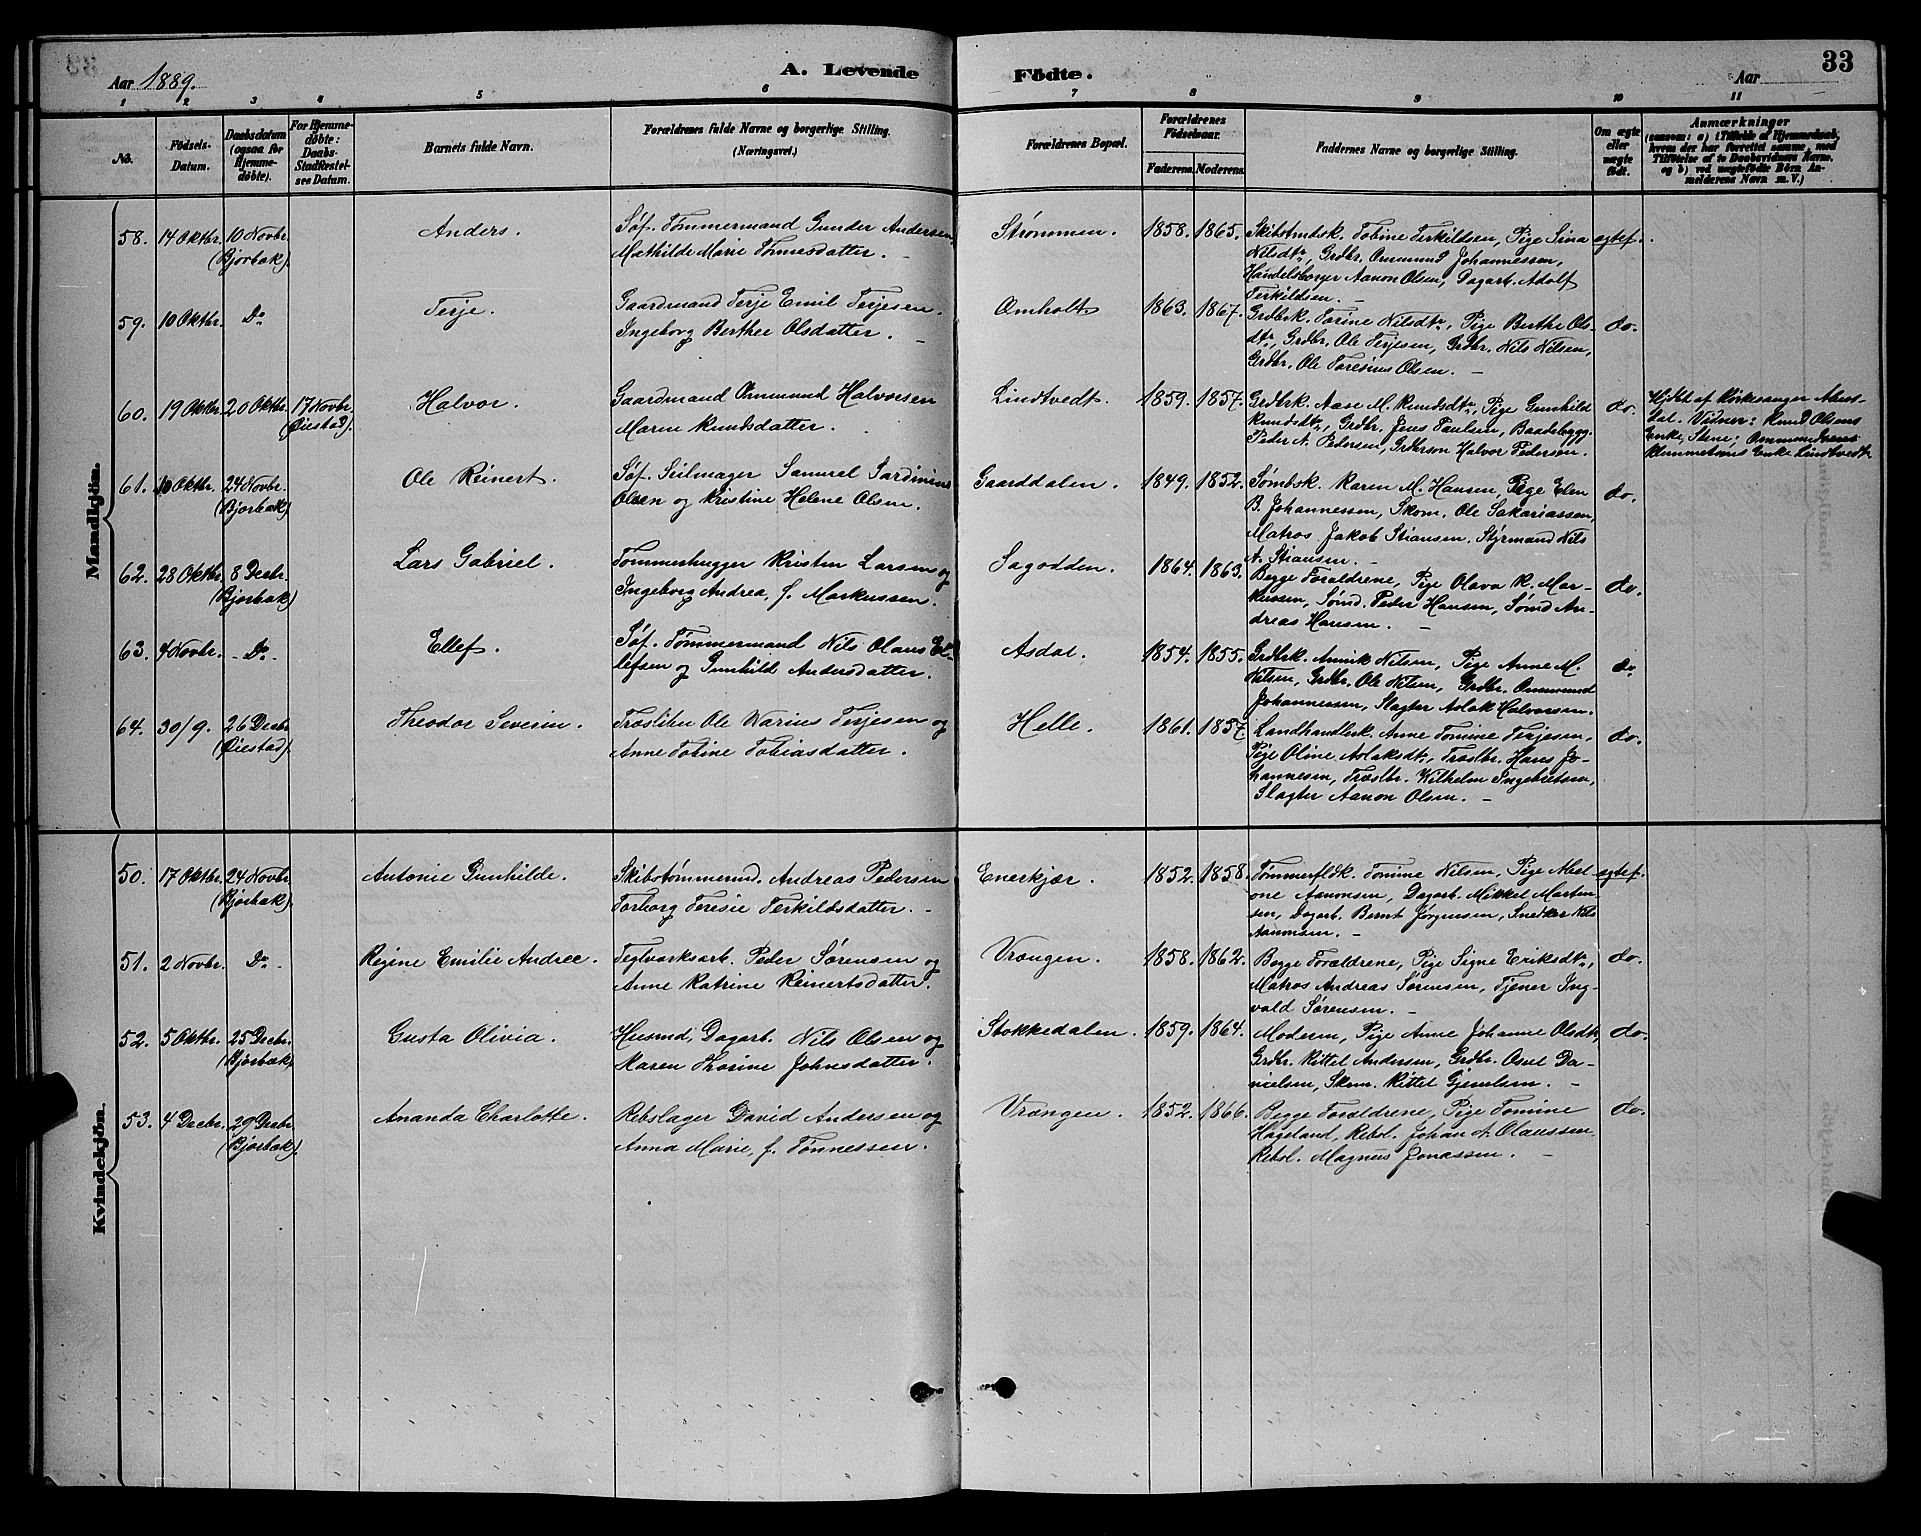 Aar 1889.
A. Levende
Födte.
Aar
33
1 2 3 4 5 6 7 8 9 10 11
No.
Födsels-Datum.
Daabsdatum (ogsaa for Hjemme-döbte).
For Hjemme-döbte: Daabs-Stadfæstel-ses Datum.
Barnets fulde Navn.
Forældrenes fulde Navne og borgerlige Stilling. (Næringsvei.)
Forældrenes Bopæl.
Forældrenes Födselsaar.
Faderens. Moderens.
Faddernes Navne og borgerlige Stilling.
Om ægte eller uægte födt.
Anmærkninger
(saasom: a) i Tilfælde af Hjemmedaab, hvem der har forrettet samme, med Tilföielse af to Daabsvidners Navne, og b) ved uægtefödte Börn An-melderens Navn m. V.)
Mandkjön.
58. 14 Oktbr. 10 Novbr. (Bjorbæk). Anders. Søf. Tømmermand Gunder Andersen,
Mathilde Marie Tønnesdatter. –
Strømmen. 1858. 1865. Skibstmdsk. Tobine Terkildsen, Pige Sina
Nilsdtr, Grdbr. Ommund Johannessen,
Handelsborger Aanon Olsen, Dagarb. Adolf
Terkildsen. –
ægtef.
59. 10 Oktbr. Do Terje. Gaardmand Terje Emil Terjesen.
Ingeborg Berthee Olsdatter. –
Omholt. 1863. 1867. Grdbrsk. Torine Nilsdtr, Pige Berthe Ols-
dtr, Grdbr. Ole Terjesen, Grdbr. Nils Nilsen,
Grdbr. Ole Toresius Olsen. –
do.
60. 19 Oktbr. 20 Oktbr. 17 Novbr. (Øiestad). Halvor. Gaardmand Ommund Halvorsen
Maren Knudsdatter. –
Lindtvedt. 1859. 1857. Grdbrsk. Aase M. Knudsdtr, Pige Gunhild
Knudsdtr, Grdbr. Jens Paulsen, Baadebygg.
Peder A. Pedersen, Grdbrsøn Halvor Pedersen.
do.
Hjdbt af Kirkesanger
dal. Vidner: Knud Olsens
Enke, Stene; Ommund
Klemmetsens Enke Lindtvedt.
61. 10 Oktbr. 24 Novbr. (Bjorbæk) Ole Reinert. Søf. Seilmager Samuel Sardinius
Olsen og Kristine Helene Olsen.
Gaarddalen. 1849. 1852. Sømdsk. Karen M. Hansen, Pige Elen
B. Johannessen, Skom. Ole Sakariassen,
Matros Jakob Stiansen, Styrmand Nils
A. Stiansen. –
do.
62. 28 Oktbr. 8 Decbr. (Bjorbæk) Lars Gabriel. Tømmerhugger Kristen Larsen og
Ingeborg Andrea, f. Markussen.
Sagodden. 1864. 1863. Begge Forældrene, Pige Olava K. Mar-
kussen, Sømd. Peder Hansen, Sømd An-
dreas Hansen. –
do.
63. 4 Novbr. – Do – Ellef. Søf. Tømmermand Nils Olaus El-
lefsen og Gunhild Andersdatter.
Asdal. 1854. 1855. Grdbrsk. Annik Nilsen, Pige Anne M.
Nilsen, Grdbr. Ole Nilsen, Grdbr. Ommund
Johannessen, Slagter Aslak Halvorsen.
do
64. 30/9. 26 Decbr (Øiestad). Theodor Severin. Træsliber Ole Karius Terjesen og
Anne Tobine Tobiasdatter.
Helle. 1861. 1857. Landhandlersk. Anne Tomine Terjesen,
Pige Oline Aslaksdtr, Træslbr. Hans Jo-
hannesen, Træslbr. Wilhelm Ingebretsen,
Slagter Aanon Olsen. –
do.
Kvindekjön.
50. 17 Oktbr. 24 Novbr. (Bjorbæk). Antonie Gunhilde. Skibstømmermd. Andreas Pedersen
Torborg Teresie Terkildsdatter. –
Enerkjær. 1852. 1858. Tømmerfldk. Tomine Nilsen, Pige Abel-
one Aanonsen, Dagarb. Mikkel Morten-
sen, Dagarb. Bernt Jørgensen, Snedker Nils
Aanonsen. –
ægtef.
51. 2 Novbr. Do – Regine Emilie Andree. Teglværksarb. Peder Sørensen og
Anne Katrine Reinertsdatter.
Vrængen. 1858. 1862. Begge Forældrene, Pige Signe Eriksdtr,
Matros Andreas Sørensen, Tjener Ing-
vald Sørensen. –
do.
52. 5 Oktbr. 25 Decbr. (Bjorbæk). Gusta Olivia. Husmd, Dagarb. Nils Olsen og
Maren Thorine Johnsdatter.
Stokkedalen. 1859. 1864. Moderen, Pige Anne Johanne Olsdtr,
Grdbr. Kittel Andersen, Grdbr. Osul Da-
nielsen, Skom. Kittel Gjerulsen. –
do.
53. 4 Decbr. 29 Decbr (Bjorbæk). Ananda Charlotte. Rebslager David Andersen og
Anna Marie, f. Tønnessen.
Vrængen. 1852. 1866. Begge Forældrene, Pige Tomine
Hageland, Rebsl. Johan A. Olaussen.
Rebsl. Magnus Jonassen. –
do.